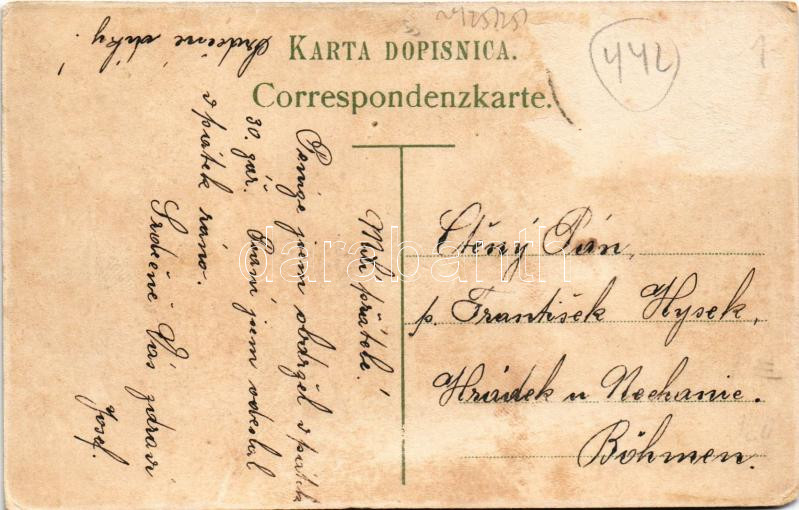 KARTA DOPISNICA.
Correspondenzkarte.
442
Ctěný Pán,
p. František Hysek,
Hrádek u Nechanic.
Böhmen.
Milí přátelé!
Peníze jsem obdržel v pátek
30. září. Psaní jsem odeslal
v pátek ráno.
Srdečně Vás zdraví
Josef.
Srdečné díky!
darabanth